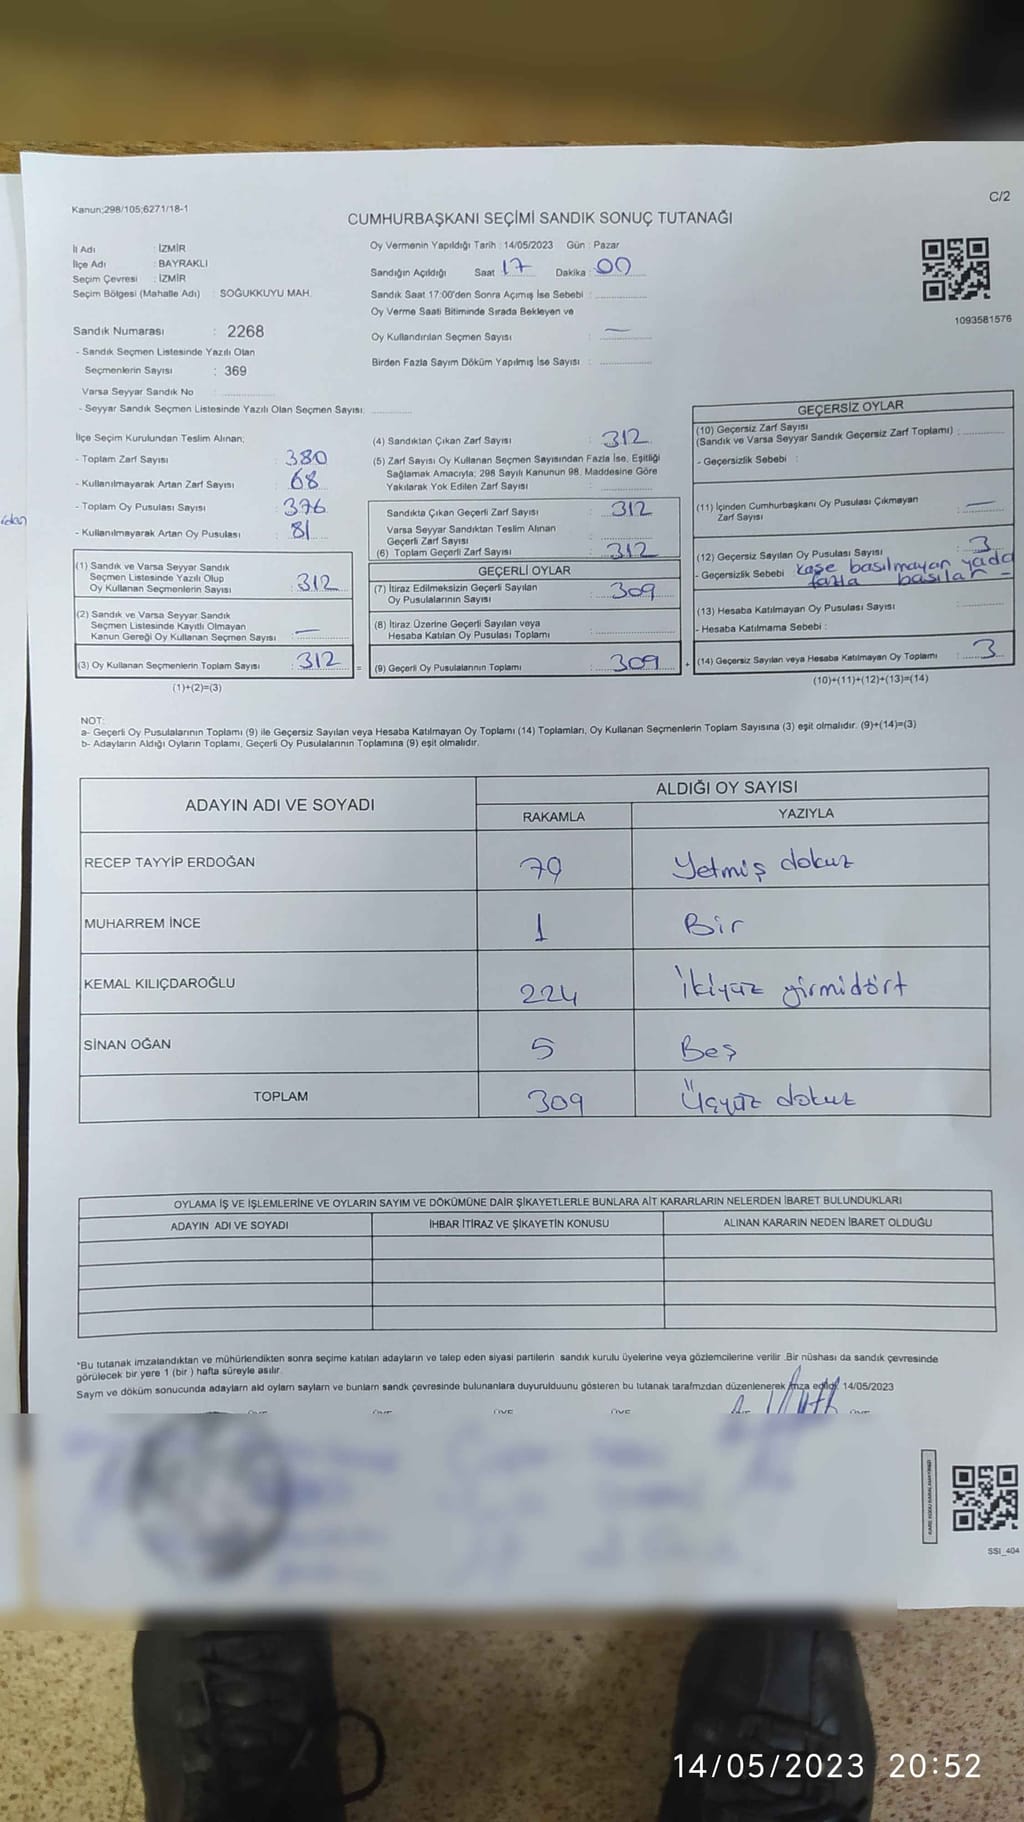 C/2
Kanun;298/105;6271/18-1
CUMHURBAŞKANI SEÇİMİ SANDIK SONUÇ TUTANAĞI
İl Adı : İZMİR
İlçe Adı : BAYRAKLI
Seçim Çevresi : İZMİR
Seçim Bölgesi (Mahalle Adı) : SOĞUKKUYU MAH.
Sandık Numarası : 2268
- Sandık Seçmen Listesinde Yazılı Olan
Seçmenlerin Sayısı : 369
Varsa Seyyar Sandık No
- Seyyar Sandık Seçmen Listesinde Yazılı Olan Seçmen Sayısı
Oy Vermenin Yapıldığı Tarih : 14/05/2023 Gün : Pazar
Sandığın Açıldığı Saat 17 Dakika : 00
Sandık Saat 17:00'den Sonra Açımış İse Sebebi :
Oy Verme Saati Bitiminde Sırada Bekleyen ve
Oy Kullandırılan Seçmen Sayısı : —
Birden Fazla Sayım Döküm Yapılmış İse Sayısı :
1093581576
İlçe Seçim Kurulundan Teslim Alınan;
- Toplam Zarf Sayısı : 380
- Kullanılmayarak Artan Zarf Sayısı : 68
- Toplam Oy Pusulası Sayısı : 376
- Kullanılmayarak Artan Oy Pusulası : 81
(1) Sandık ve Varsa Seyyar Sandık
Seçmen Listesinde Yazılı Olup
Oy Kullanan Seçmenlerin Sayısı : 312
(2) Sandık ve Varsa Seyyar Sandık
Seçmen Listesinde Kayıtlı Olmayan
Kanun Gereği Oy Kullanan Seçmen Sayısı : —
(3) Oy Kullanan Seçmenlerin Toplam Sayısı : 312
(1)+(2)=(3)
(4) Sandıktan Çıkan Zarf Sayısı : 312
(5) Zarf Sayısı Oy Kullanan Seçmen Sayısından Fazla İse, Eşitliği
Sağlamak Amacıyla; 298 Sayılı Kanunun 98. Maddesine Göre
Yakılarak Yok Edilen Zarf Sayısı :
Sandıkta Çıkan Geçerli Zarf Sayısı : 312
Varsa Seyyar Sandıktan Teslim Alınan
Geçerli Zarf Sayısı :
(6) Toplam Geçerli Zarf Sayısı : 312
GEÇERLİ OYLAR
(7) İtiraz Edilmeksizin Geçerli Sayılan
Oy Pusulalarının Sayısı : 309
(8) İtiraz Üzerine Geçerli Sayılan veya
Hesaba Katılan Oy Pusulası Toplamı :
= (9) Geçerli Oy Pusulalarının Toplamı : 309
GEÇERSİZ OYLAR
(10) Geçersiz Zarf Sayısı
(Sandık ve Varsa Seyyar Sandık Geçersiz Zarf Toplamı) :
- Geçersizlik Sebebi :
(11) İçinden Cumhurbaşkanı Oy Pusulası Çıkmayan
Zarf Sayısı : —
(12) Geçersiz Sayılan Oy Pusulası Sayısı : 3
- Geçersizlik Sebebi kaşe basılmayan yada
fazla basılan -
(13) Hesaba Katılmayan Oy Pusulası Sayısı :
- Hesaba Katılmama Sebebi :
+ (14) Geçersiz Sayılan veya Hesaba Katılmayan Oy Toplamı : 3
(10)+(11)+(12)+(13)=(14)
NOT:
a- Geçerli Oy Pusulalarının Toplamı (9) ile Geçersiz Sayılan veya Hesaba Katılmayan Oy Toplamı (14) Toplamları, Oy Kullanan Seçmenlerin Toplam Sayısına (3) eşit olmalıdır. (9)+(14)=(3)
b- Adayların Aldığı Oyların Toplamı, Geçerli Oy Pusulalarının Toplamına (9) eşit olmalıdır.
ADAYIN ADI VE SOYADI ALDIĞI OY SAYISI
RAKAMLA YAZIYLA
RECEP TAYYİP ERDOĞAN 79 Yetmiş dokuz
MUHARREM İNCE 1 Bir
KEMAL KILIÇDAROĞLU 224 İkiyüz yirmidört
SİNAN OĞAN 5 Beş
TOPLAM 309 Üçyüz dokuz
OYLAMA İŞ VE İŞLEMLERİNE VE OYLARIN SAYIM VE DÖKÜMÜNE DAİR ŞİKAYETLERLE BUNLARA AİT KARARLARIN NELERDEN İBARET BULUNDUKLARI
ADAYIN ADI VE SOYADI İHBAR İTİRAZ VE ŞİKAYETİN KONUSU ALINAN KARARIN NEDEN İBARET OLDUĞU
*Bu tutanak imzalandıktan ve mühürlendikten sonra seçime katılan adayların ve talep eden siyasi partilerin sandık kurulu üyelerine veya gözlemcilerine verilir .Bir nüshası da sandık çevresinde
görülecek bir yere 1 (bir ) hafta süreyle asılır.
Sayım ve döküm sonucunda adayların ald oyların sayları ve bunların sandk çevresinde bulunanlara duyurulduunu gösteren bu tutanak tarafmzdan düzenlenerek imza edildi. 14/05/2023
SSI_404
14/05/2023 20:52